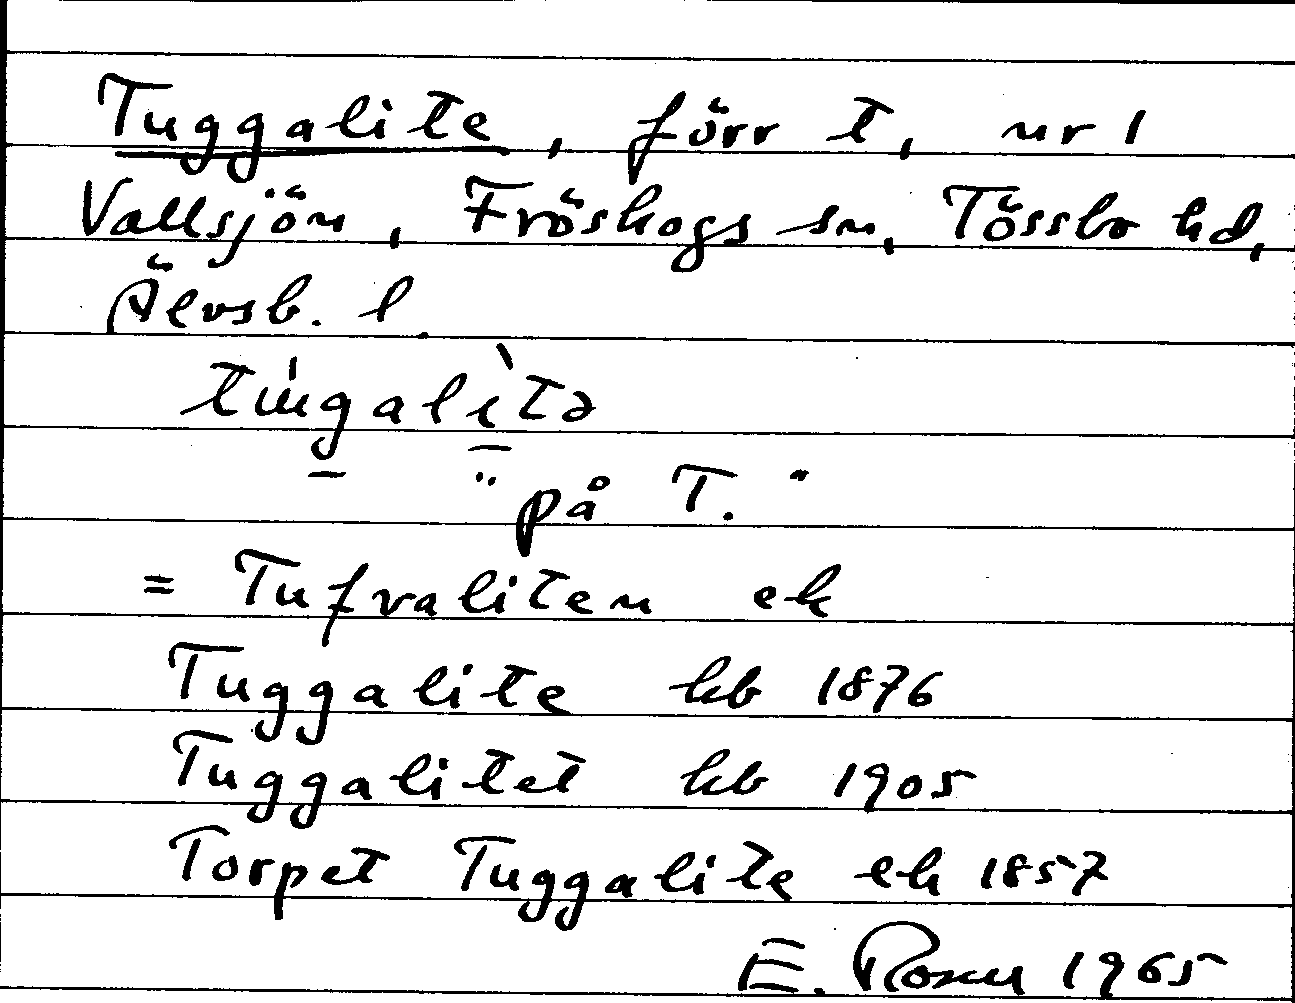 Tuggalite, förr t, nr 1
Vallsjön, Fröskogs sn, Tössbo hd,
Älvsb. l.
på T. "
= Tufvaliten ek
Tuggalite kb 1876
Tuggalitet kb 1905
Torpet Tuggalite ek 1857
E. 1965